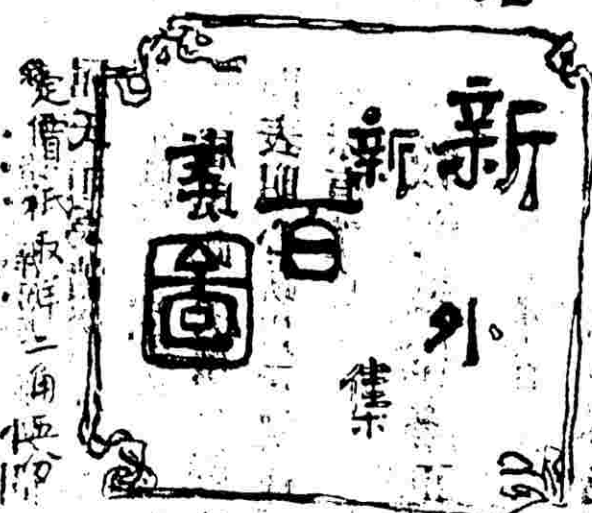 新新百美圖
外集
價祇取洋二角五分